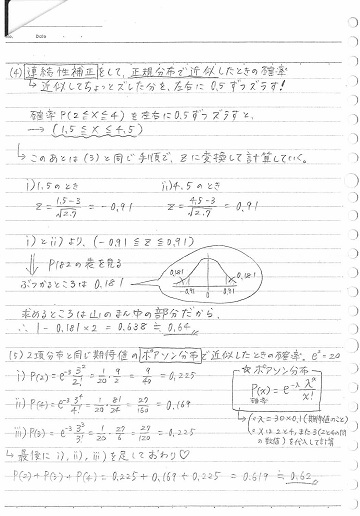 No. Date
(4) 連続性補正をして、正規分布で近似したときの確率
↳ 近似してちょっとズレた分を、左右に 0.5 ずつズラす!
確率 P(2≦X≦4) を左右に 0.5 ずつズラすと、
→ (1.5 ≦ X ≦ 4.5)
↳ このあとは (3) と同じ手順で、Z に変換して計算していく。
i) 1.5 のとき ii) 4.5 のとき
Z = 1.5-3/√2.7 = -0.91 Z = 4.5-3/√2.7 = 0.91
i) と ii) より、(-0.91 ≦ Z ≦ 0.91)
⇓ P182 の表を見る
ぶつかるところは 0.181
0.181 0.181
-0.91 0 0.91
求めるところは山のまん中の部分だから、
∴ 1 - 0.181×2 = 0.638 ≒ 0.64
(5) 2項分布と同じ期待値のポアソン分布で近似したときの確率。e³=20
i) P(2) = e⁻³ 3²/2! = 1/20 · 9/2 = 9/40 = 0.225
☆ ポアソン分布
P(x) = e^-λ λ^x/x!
確率
ii) P(4) = e⁻³ 3⁴/4! = 1/20 · 81/24 = 27/160 = 0.169
iii) P(3) = e⁻³ 3³/3! = 1/20 · 27/6 = 27/120 = 0.225
λ = 30×0.1 (期待値のこと)
X は 2と4、また3 (2と4の間の数値) を代入して計算
↳ 最後に i), ii), iii) を足しておわり♡
P(2)+P(3)+P(4) = 0.225 + 0.169 + 0.225 = 0.619 ≒ 0.62